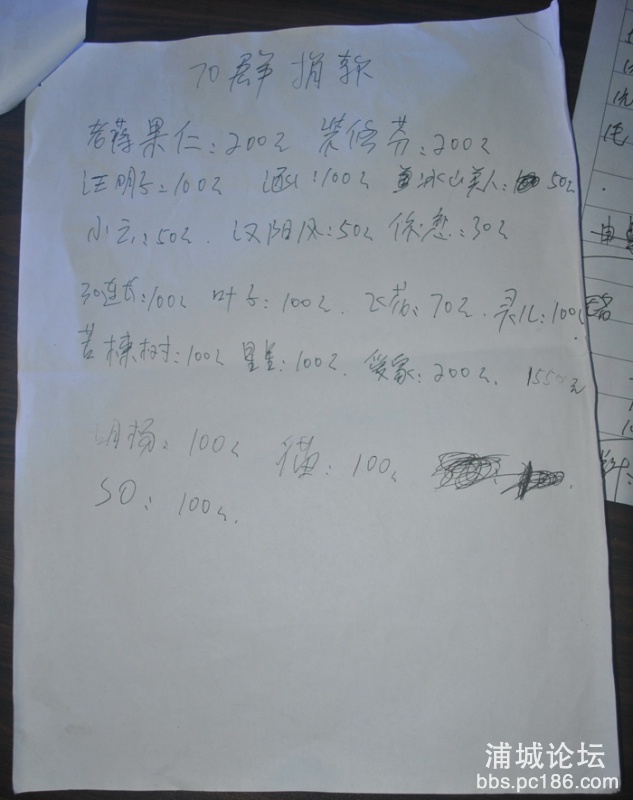 70群捐款
果仁:200元 装修芬:200元
汪明子:100元 :100元 冰山美人: 50元
小云:50元. 汉阳风:50元 徐愁:30元
连长:100元 叶子:100元. 飞花:70元. 灵儿:100元
苦楝树:100元 星星:100元. 爱家:200元. 1550元
明杨:100元 猫:100元
SO:100元.
浦城论坛
bbs.pc186.com